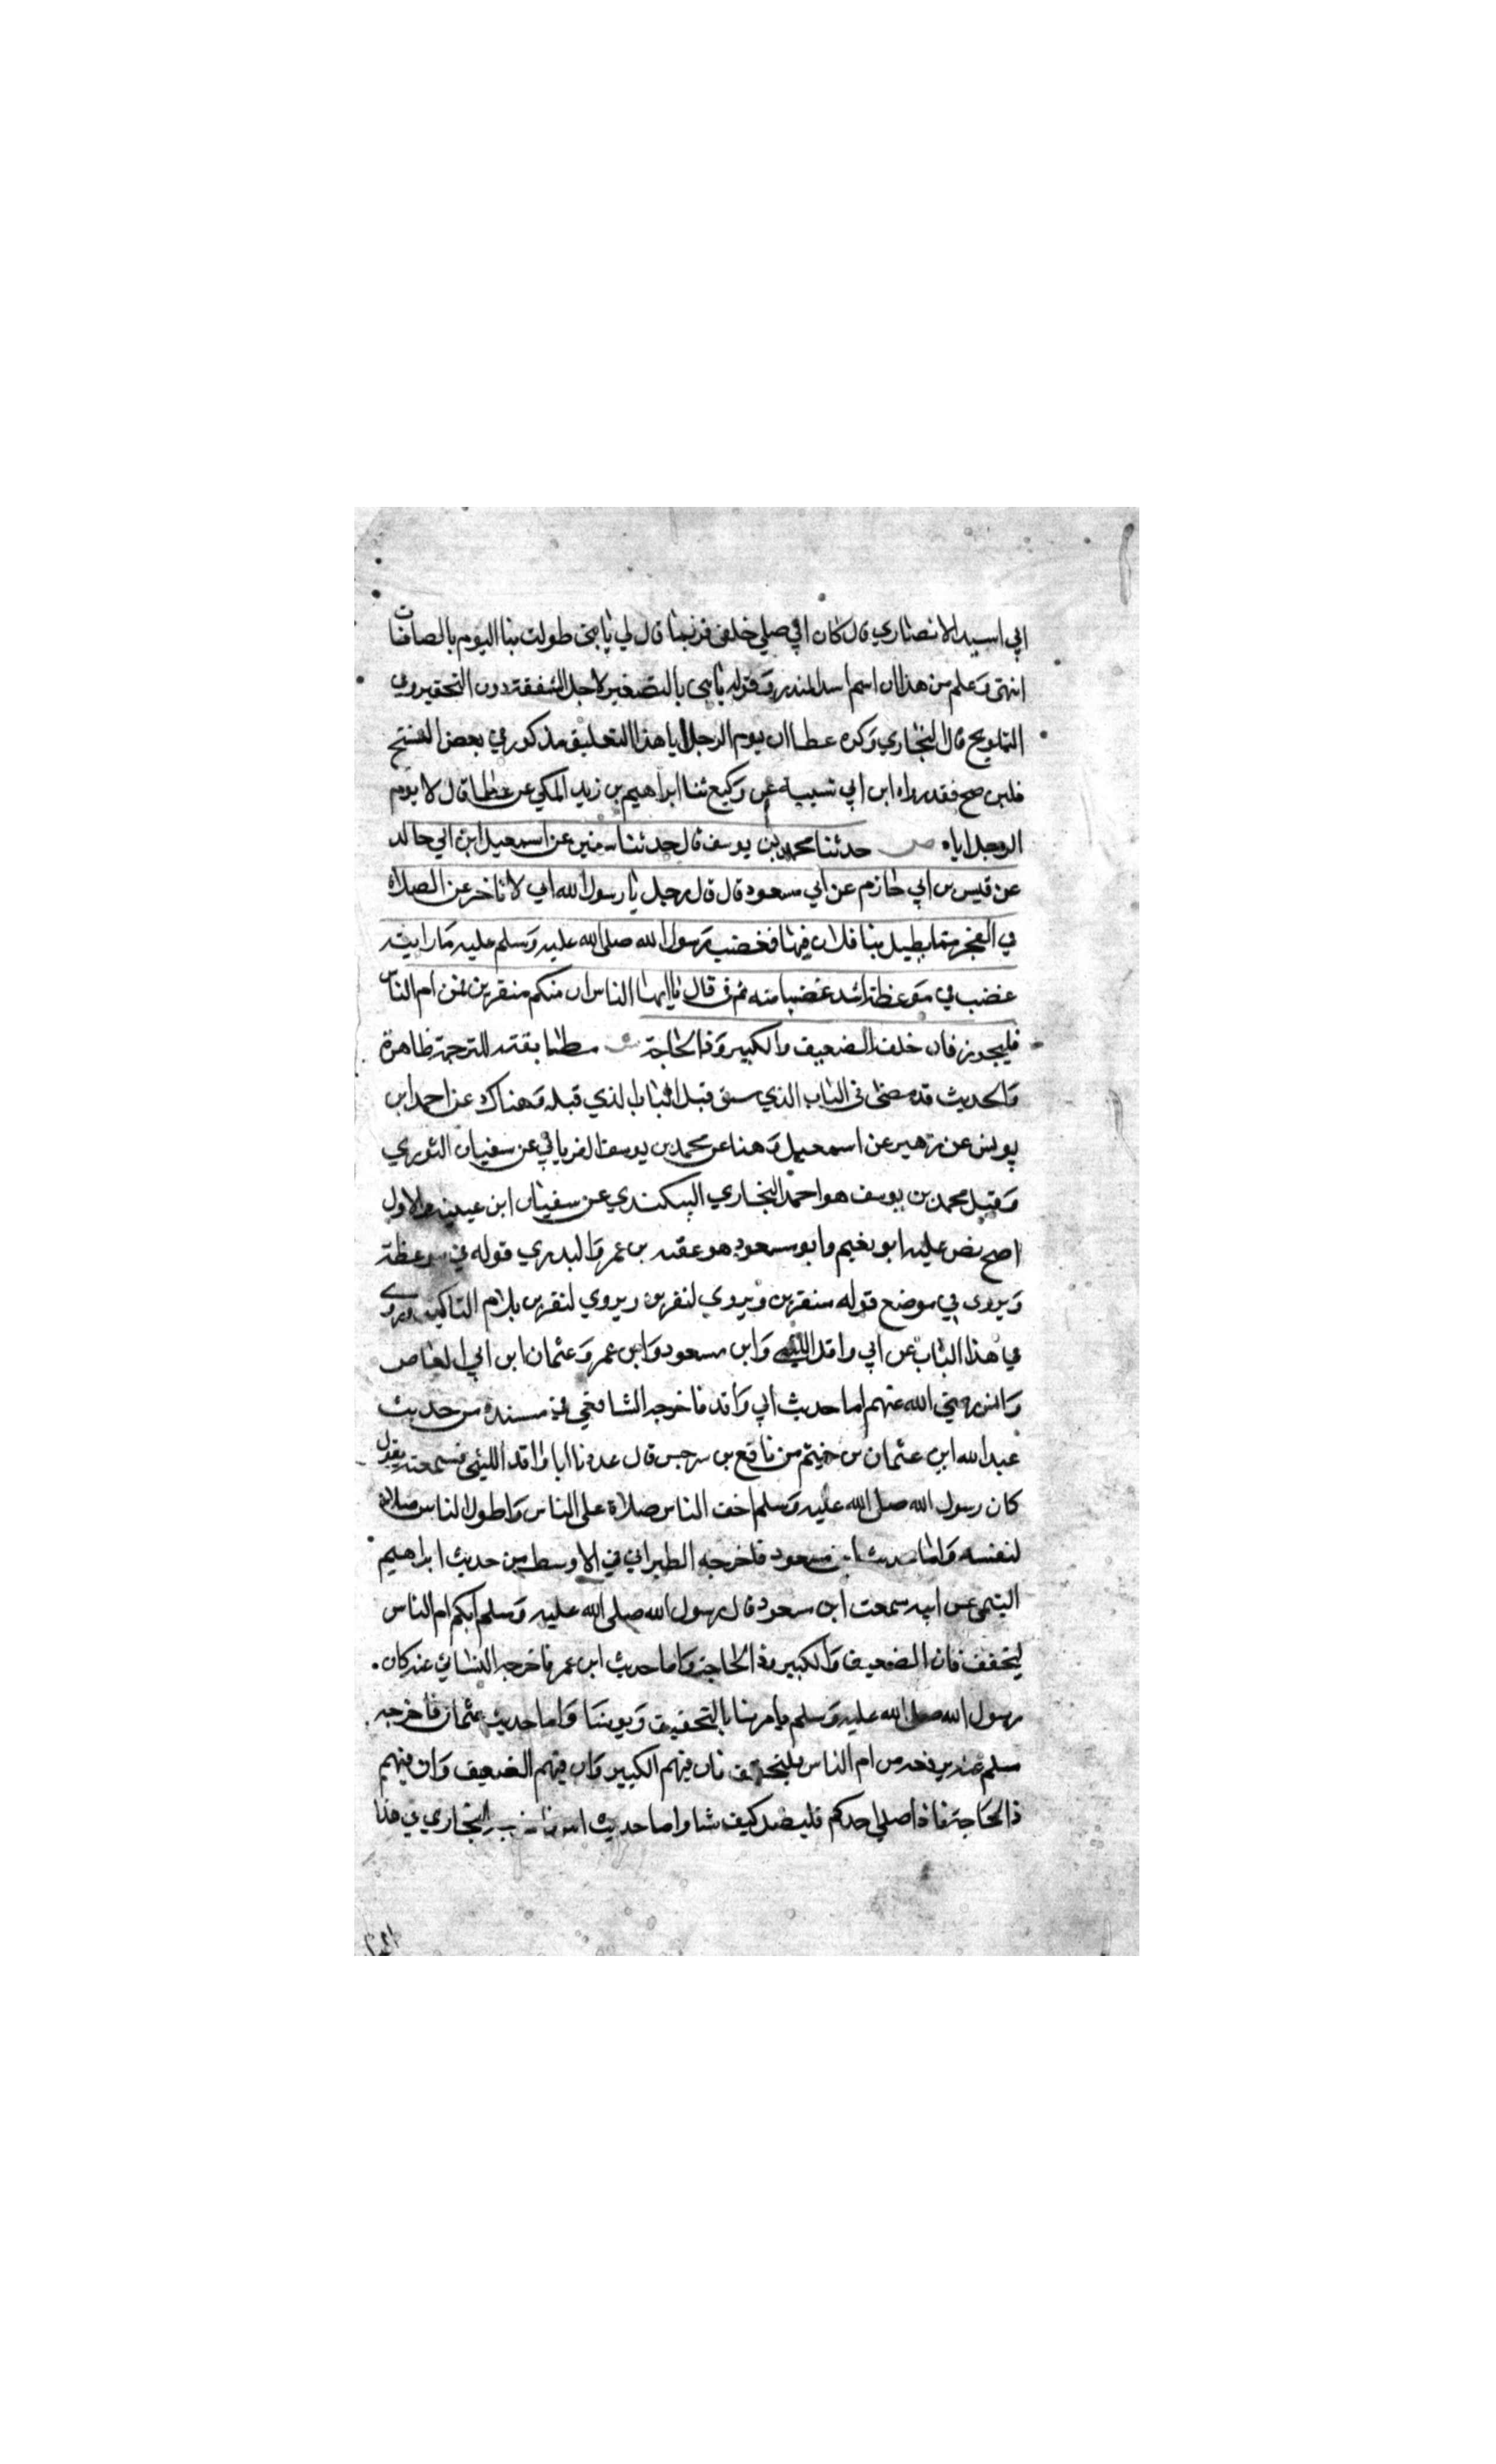 ابي اسيد الانصاري قال كان ابي صلي خلفي فربما قال لي يابني طولت بنا اليوم بالصافات
انتهى وعلم من هذا ان اسم اسد المنذر وقوله يابني بالتصغير لاجل الشفقة دون التحقير وفي
التلويح قال البخاري وكره عطا ان يوم الرجل اباه هذا التعليق مذكور في بعض النسخ
فلين صح فقد رواه ابن ابي شيبة عن وكيع ثنا ابراهيم بن زيد المكي عن عطا قال لا يوم
الرجل اباه ص حدثنا محمد بن يوسف قال حدثنا سفين عن اسمعيل ابن ابي خالد
عن قيس بن ابي حازم عن ابي مسعود قال قال رجل يا رسول الله اني لا تاخر عن الصلاة
في الفجر مما يطيل بنا فلان فيها فغضب رسول الله صلى الله عليه وسلم عليه ما رايته
غضب في موعظة اشد غضبا منه ثم قال يا ايها الناس ان منكم منفرين فمن ام الناس
فليجوز فان خلفه الضعيف والكبير وذا الحاجة ش مطابقته للترجمة ظاهرة
والحديث قد مضى في الباب الذي سبق قبل الباب الذي قبله وهناك عن احمد ابن
يونس عن زهير عن اسمعيل وهنا عن محمد بن يوسف الفريابي عن سفيان الثوري
وقيل محمد بن يوسف هو احمد البخاري البيكندي عن سفيان ابن عيينة والاول
اصح نص عليه ابو نعيم وابو مسعود هو عقبة بن عمر والبدري قوله في موعظة
ويروى في موضع قوله منفرين ويروي لنفرين ويروي لنفرين بلام التاكيد وروي
في هذا الباب عن ابي واقد الليثي وابن مسعود وابن عمر وعثمان ابن ابي العاص
وانس رضي الله عنهم اما حديث ابي واقد فاخرجه الشافعي في مسنده من حديث
عبد الله ابن عثمان بن خيثم من نافع بن سرجس قال عدنا ابا واقد الليثي فسمعته يقول
كان رسول الله صلى الله عليه وسلم اخف الناس صلاة على الناس واطول الناس صلاة
لنفسه واما حديث ابن مسعود فاخرجه الطبراني في الاوسط من حديث ابراهيم
التيمي عن ابيه سمعت ابن مسعود قال رسول الله صلى الله عليه وسلم ايكم ام الناس
ليخفف فان الضعيف والكبير وذا الحاجة واما حديث ابن عمر فاخرجه النسائي عنه كان
رسول الله صلى الله عليه وسلم يامرنا بالتخفيف ويومنا واما حديث عثمان فاخرجه
مسلم عنه من ام الناس فليخفف فان فيهم الكبير وان فيهم الضعيف وان فيهم
ذا الحاجة فاذا صلي احدكم فليصل كيف شا واما حديث انس البخاري في هذا